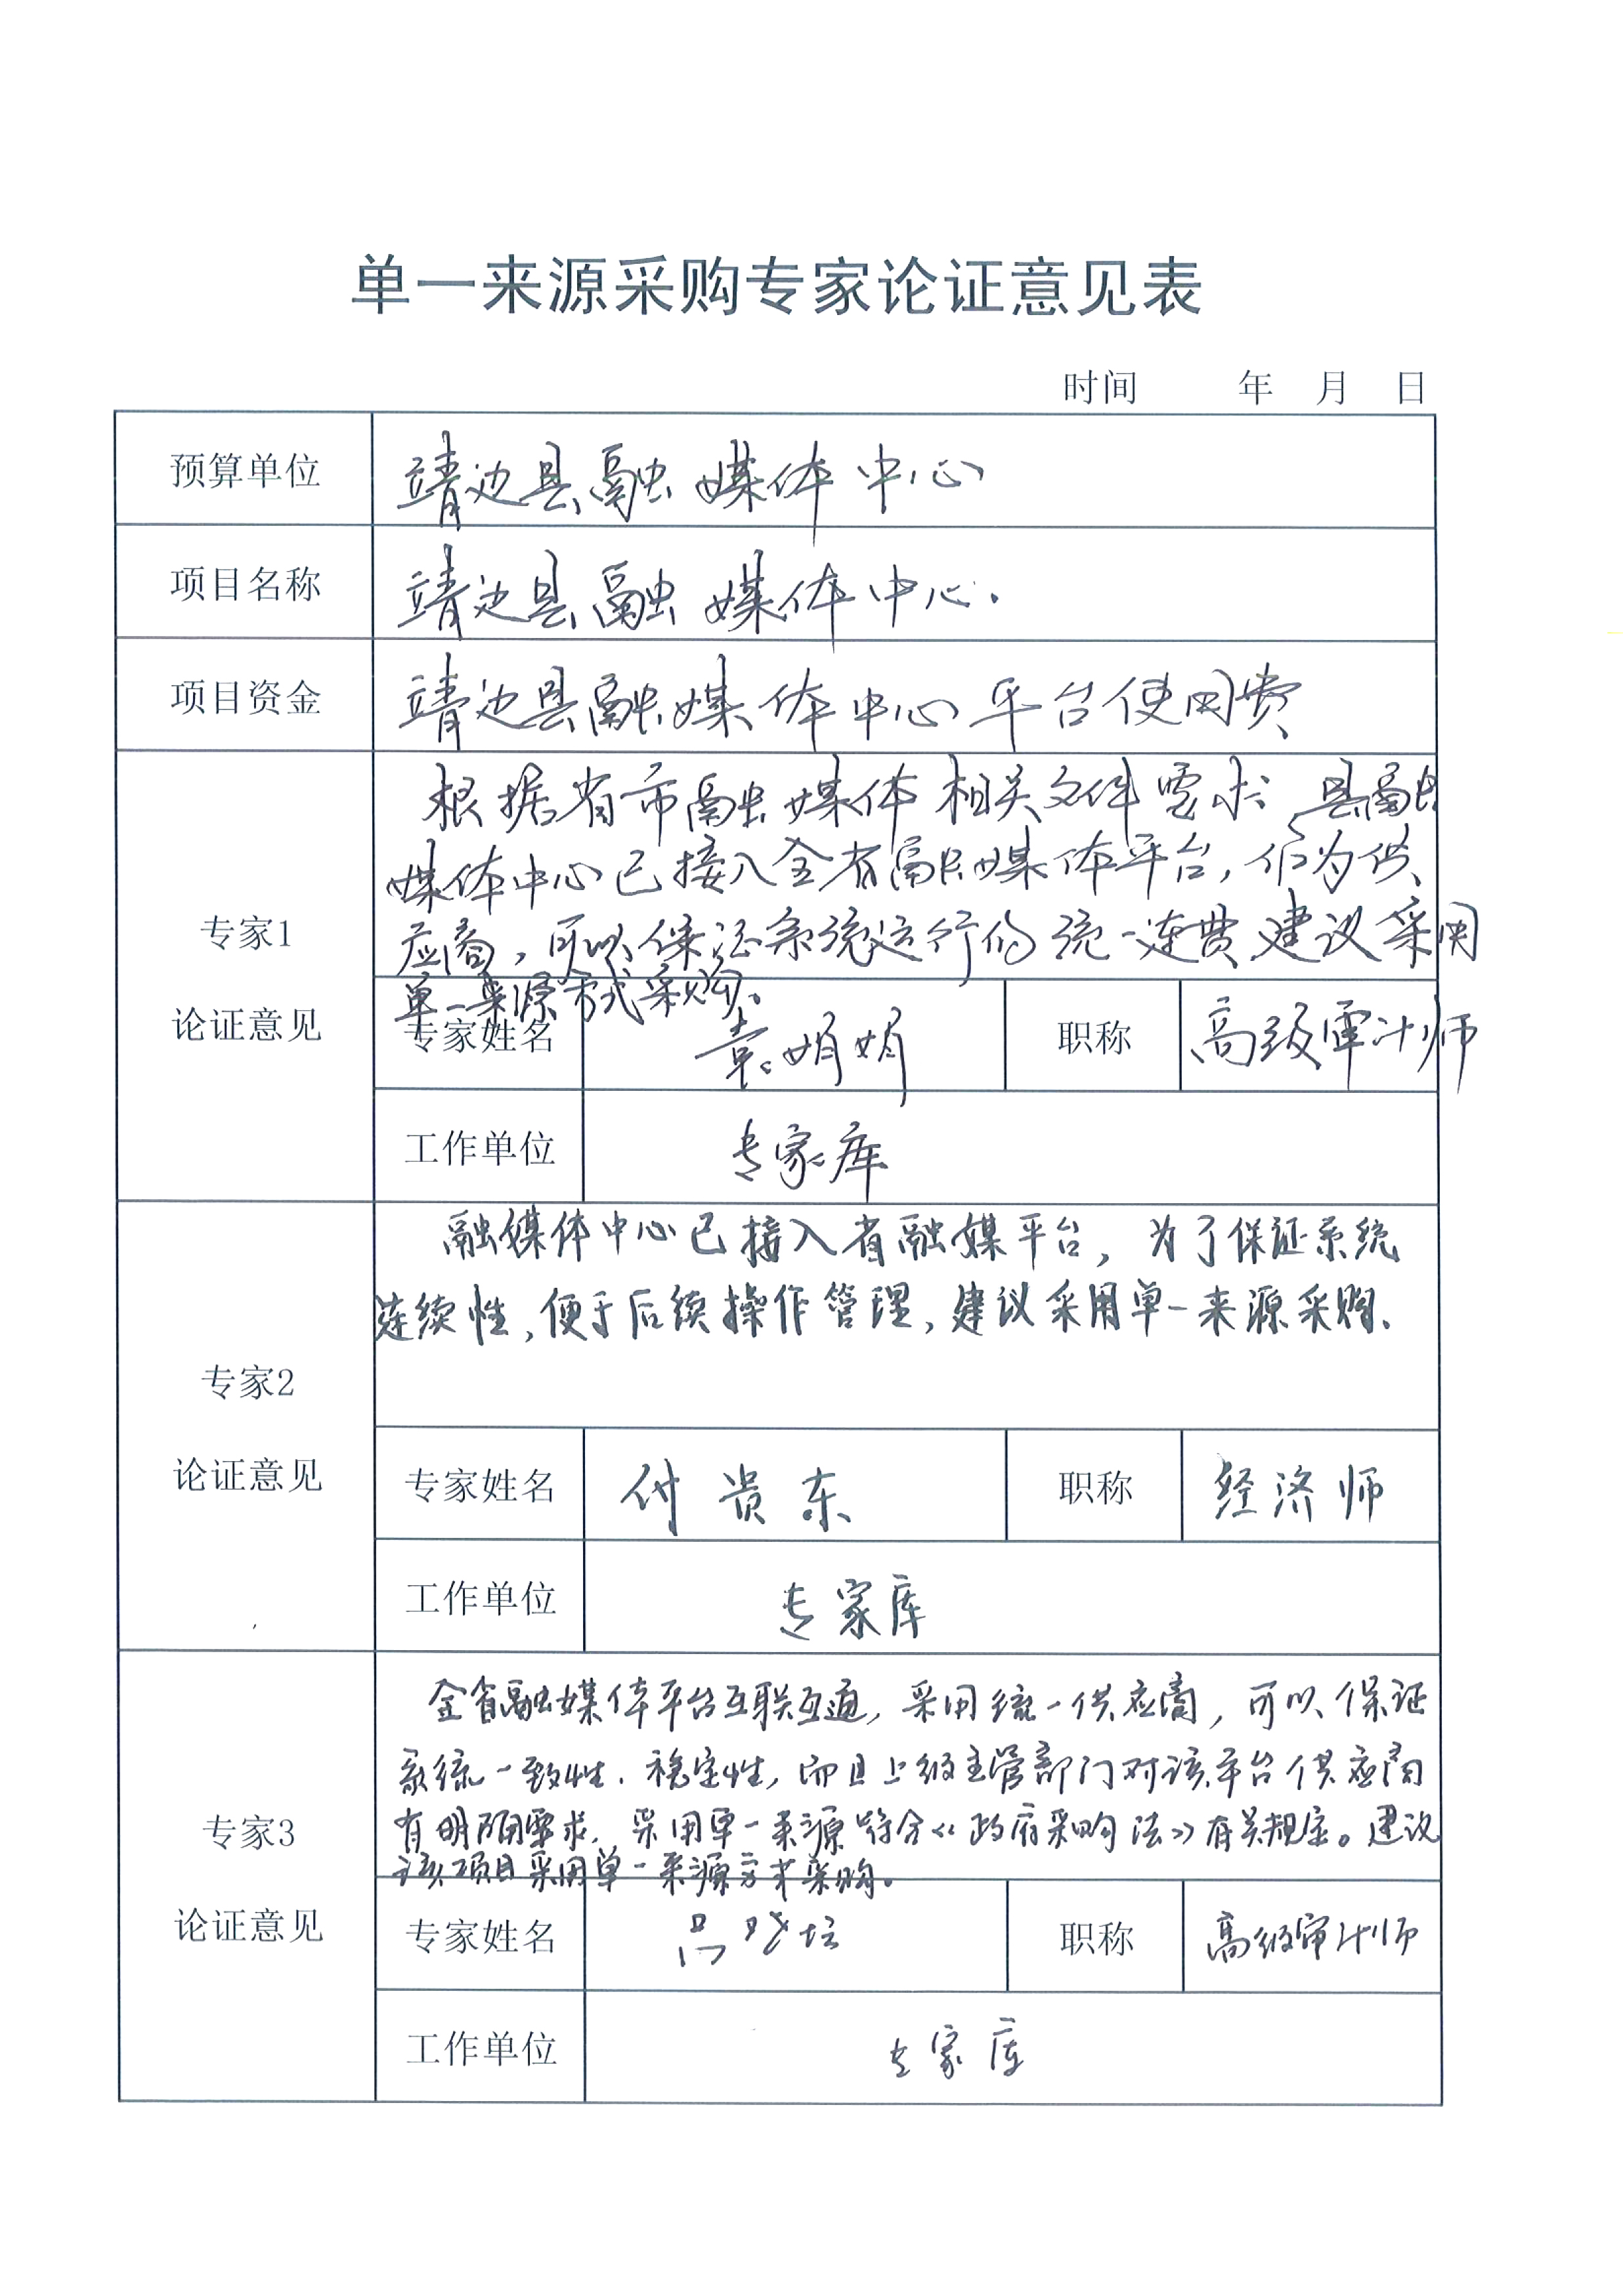 单一来源采购专家论证意见表
时间 年 月 日
预算单位 靖边县融媒体中心
项目名称 靖边县融媒体中心.
项目资金 靖边县融媒体中心平台使用费
专家1
论证意见
根据省市融媒体相关文件要求 县融
媒体中心已接入全省融媒体平台,仍为供
应商,可以保证系统运行的统一连贯 建议采用
单一来源方式采购。
专家姓名 袁娟娟 职称 高级审计师
工作单位 专家库
专家2
论证意见
融媒体中心已接入省融媒平台,为了保证系统
连续性,便于后续操作管理,建议采用单一来源采购.
专家姓名 付贵东 职称 经济师
工作单位 专家库
专家3
论证意见
全省融媒体平台互联互通,采用统一供应商,可以保证
系统一致性.稳定性,而且上级主管部门对该平台供应商
有明确要求,采用单一来源符合《政府采购法》有关规定。建议
该项目采用单一来源方式采购。
专家姓名 吕 职称 高级审计师
工作单位 专家库